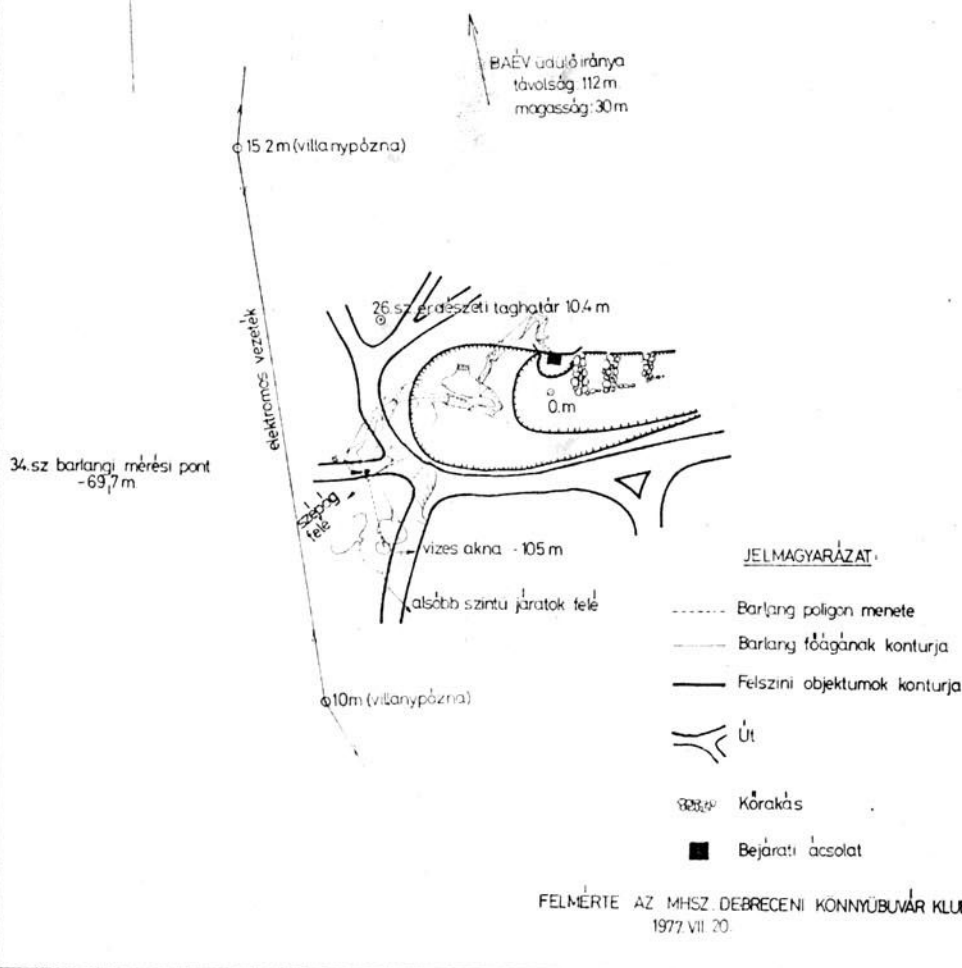 BAÉV üdülő iránya
távolság: 112 m.
magasság: 30 m
15.2 m (villanypózna)
26.sz erdészeti taghatár 10.4 m
elektromos vezeték
0.m
34.sz barlangi mérési pont
-69,7 m
szépág
felé
vizes akna -105 m
alsóbb szintű járatok felé
10m (villanypózna)
JELMAGYARÁZAT:
Barlang poligon menete
Barlang főágának konturja
Felszini objektumok konturja
Út
Kőrakás
Bejárati ácsolat
FELMÉRTE AZ MHSZ. DEBRECENI KÖNNYŰBUVÁR KLUB
1977. VII. 20.